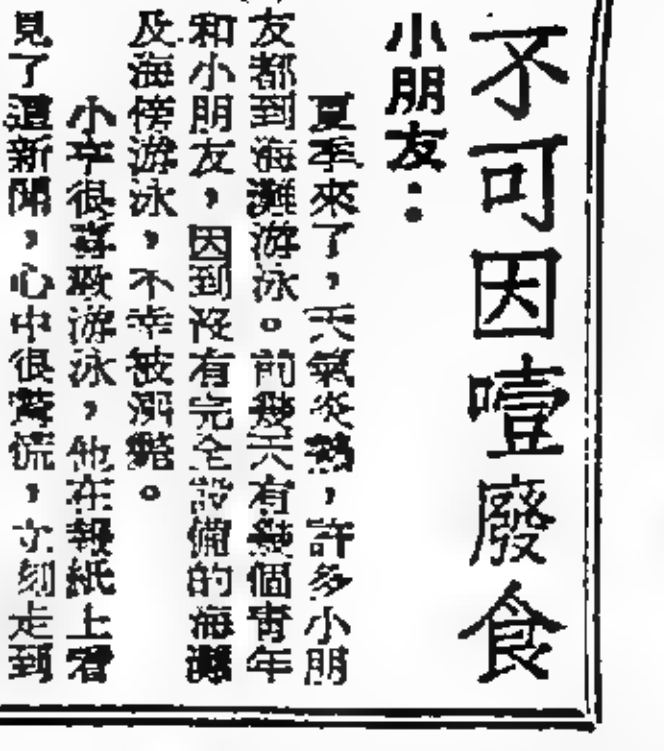 不可因噎廢食
小朋友：
夏季來了，天氣炎熱，許多小朋
友都到海灘游泳。前幾天有幾個青年
和小朋友，因到沒有完全設備的海灘
及海傍游泳，不幸被溺斃。
小辛很喜歡游泳，他在報紙上看
見了這新聞，心中很驚慌，立刻走到